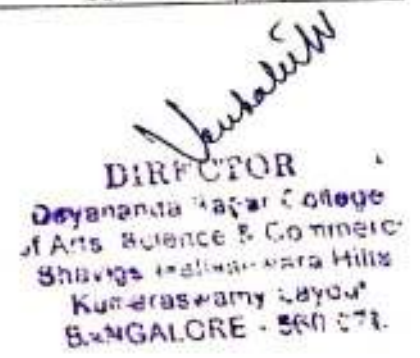 DIRECTOR
Dayananda Sagar College
of Arts Science & Commerce
Shavige Malleshwara Hills
Kumaraswamy Layout
BANGALORE - 560 078.